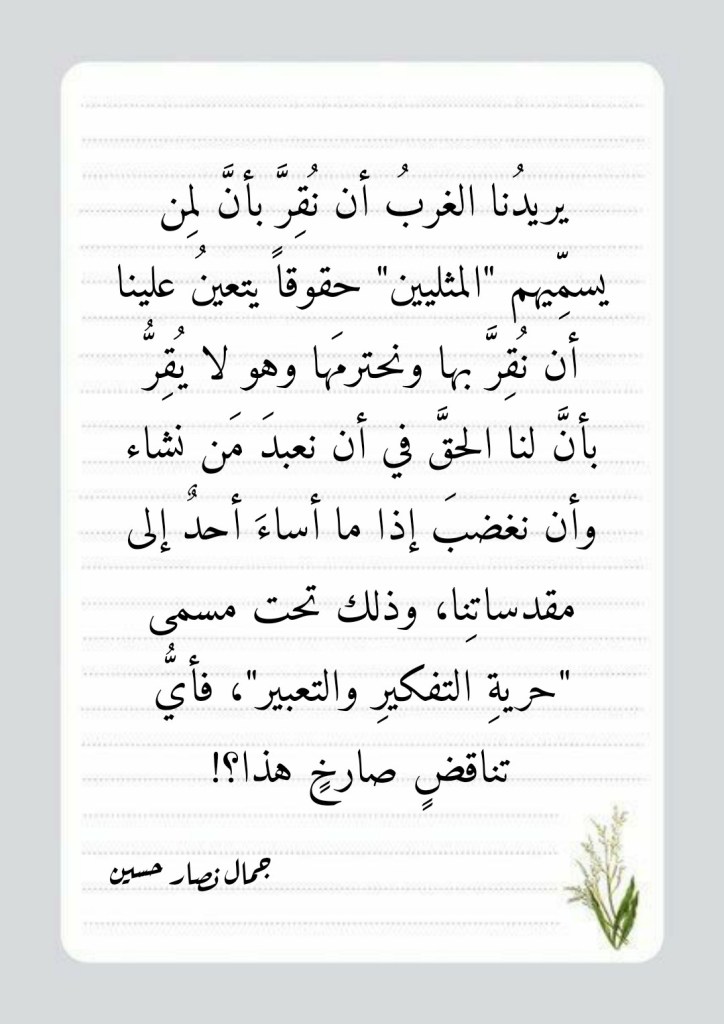 يريدُنا الغربُ أن نُقِرَّ بأنَّ لِمن
يسمِّيهم "المثليين" حقوقاً يتعينُ علينا
أن نُقِرَّ بها ونحترمَها وهو لا يُقِرُّ
بأنَّ لنا الحقَّ في أن نعبدَ مَن نشاء
وأن نغضبَ إذا ما أساءَ أحدٌ إلى
مقدساتِنا، وذلك تحت مسمى
"حريةِ التفكيرِ والتعبير"، فأيُّ
تناقضٍ صارخٍ هذا؟!
جمال نصار حسين